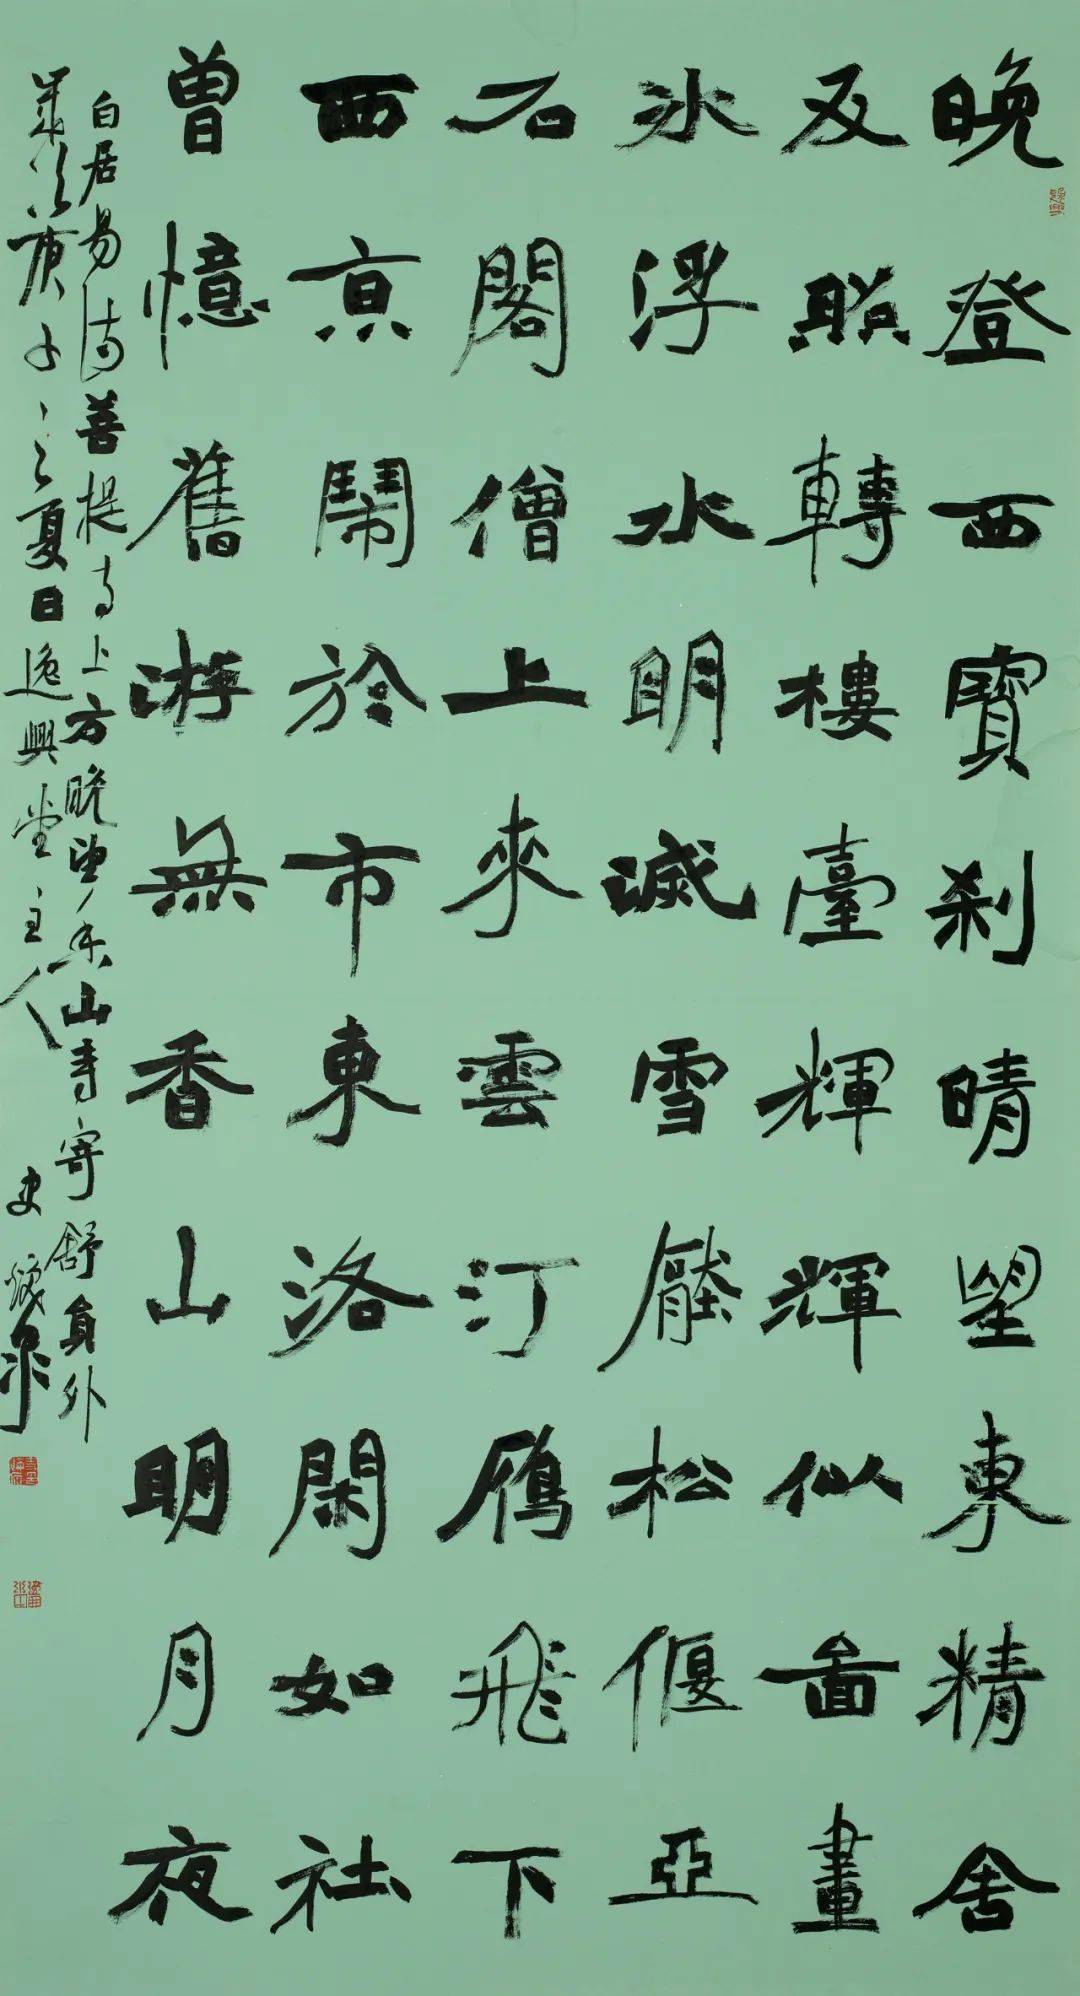 晚登西寶刹晴望東精舍
反照轉樓臺輝輝似圖畫
冰浮水明滅雪壓松偃亞
石閣僧上來雲汀鴈飛下
西京鬧於市東洛閑如社
曾憶舊游無香山明月夜
白居易詩菩提寺上方晚望香山寺寄舒員外
歲次庚子之夏日逸興堂主人史